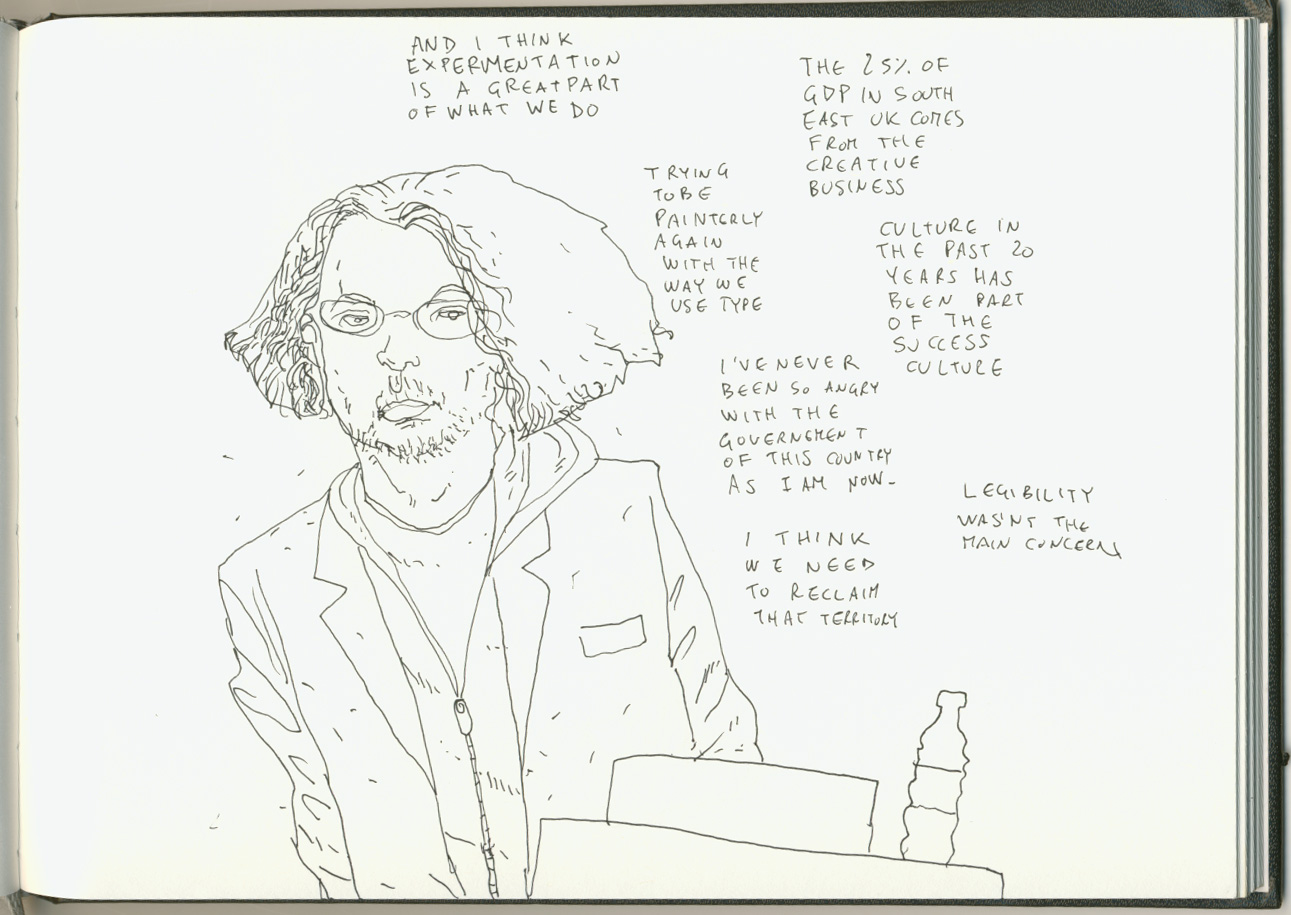 AND I THINK
EXPERIMENTATION
IS A GREAT PART
OF WHAT WE DO
THE 25% OF
GDP IN SOUTH
EAST UK COMES
FROM THE
CREATIVE
BUSINESS
TRYING
TO BE
PAINTERLY
AGAIN
WITH THE
WAY WE
USE TYPE
CULTURE IN
THE PAST 20
YEARS HAS
BEEN PART
OF THE
SUCCESS
CULTURE
I'VE NEVER
BEEN SO ANGRY
WITH THE
GOVERNGMENT
OF THIS COUNTRY
AS I AM NOW-
LEGIBILITY
WAS'NT THE
MAIN CONCERN
I THINK
WE NEED
TO RECLAIM
THAT TERRITORY